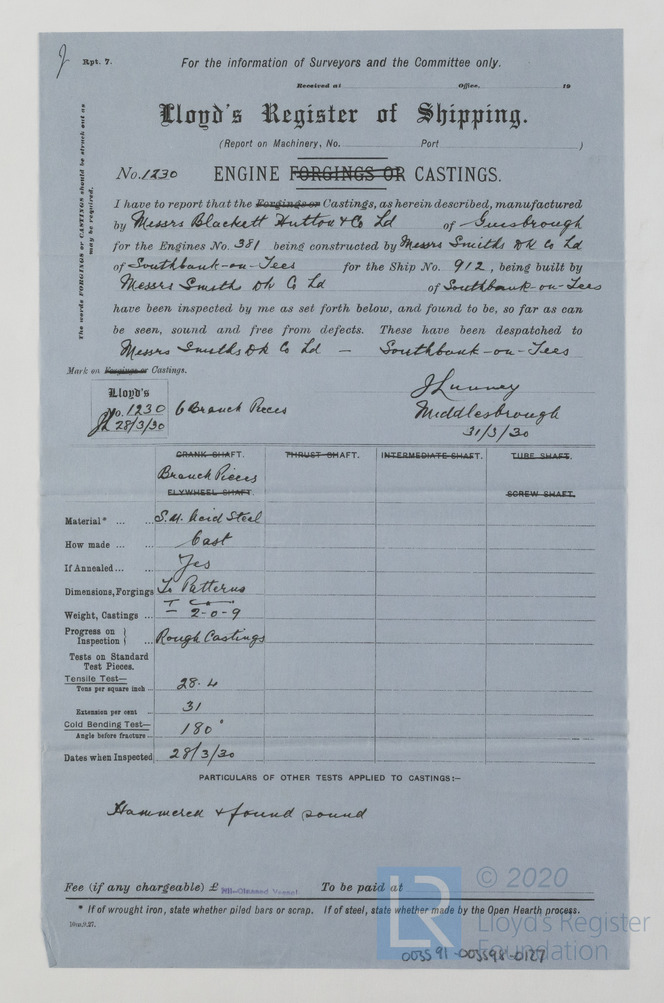 J
Rpt. 7.
For the information of Surveyors and the Committee only.
Received at Office, 19
Lloyd's Register of Shipping.
(Report on Machinery, No. Port )
No. 1230 ENGINE FORGINGS OR CASTINGS.
The words FORGINGS or CASTINGS should be struck out as
may be required.
I have to report that the Forgings or Castings, as herein described, manufactured
by Messrs Blackett Hutton & Co Ld of Guisbrough
for the Engines No. 381 being constructed by Messrs Smiths Dk Co Ld
of Southbank-on-Tees for the Ship No. 912, being built by
Messrs Smith Dk Co Ld of Southbank-on-Tees
have been inspected by me as set forth below, and found to be, so far as can
be seen, sound and free from defects. These have been despatched to
Messrs Smiths Dk Co Ld — Southbank-on-Tees
Mark on Forgings or Castings.
Lloyd's
No. 1230
JL 28/3/30
6 Branch Pieces
J Lunney
Middlesbrough
31/3/30
CRANK SHAFT. THRUST SHAFT. INTERMEDIATE SHAFT. TUBE SHAFT.
Branch Pieces
FLYWHEEL SHAFT. SCREW SHAFT.
Material* ... ... S.M. Acid Steel
How made ... ... Cast
If Annealed ... ... Yes
Dimensions, Forgings To Patterns
T C
Weight, Castings ... – 2-0-9
Progress on Inspection } ... Rough Castings
Tests on Standard
Test Pieces.
Tensile Test—
Tons per square inch ... 28.4
Extension per cent ... 31
Cold Bending Test—
Angle before fracture ... 180°
Dates when Inspected 28/3/30
PARTICULARS OF OTHER TESTS APPLIED TO CASTINGS:—
Hammered & found sound
Fee (if any chargeable) £ Nil-Classed Vessel To be paid at
* If of wrought iron, state whether piled bars or scrap. If of steel, state whether made by the Open Hearth process.
LR
© 2020
Lloyd's Register
Foundation
003591-003598-0127